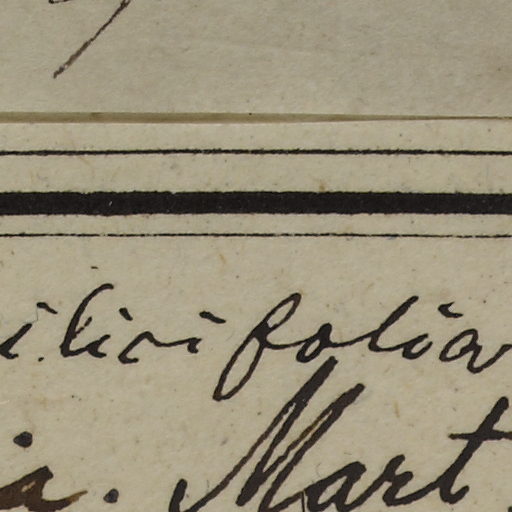 ilicifolia
ia. Mart